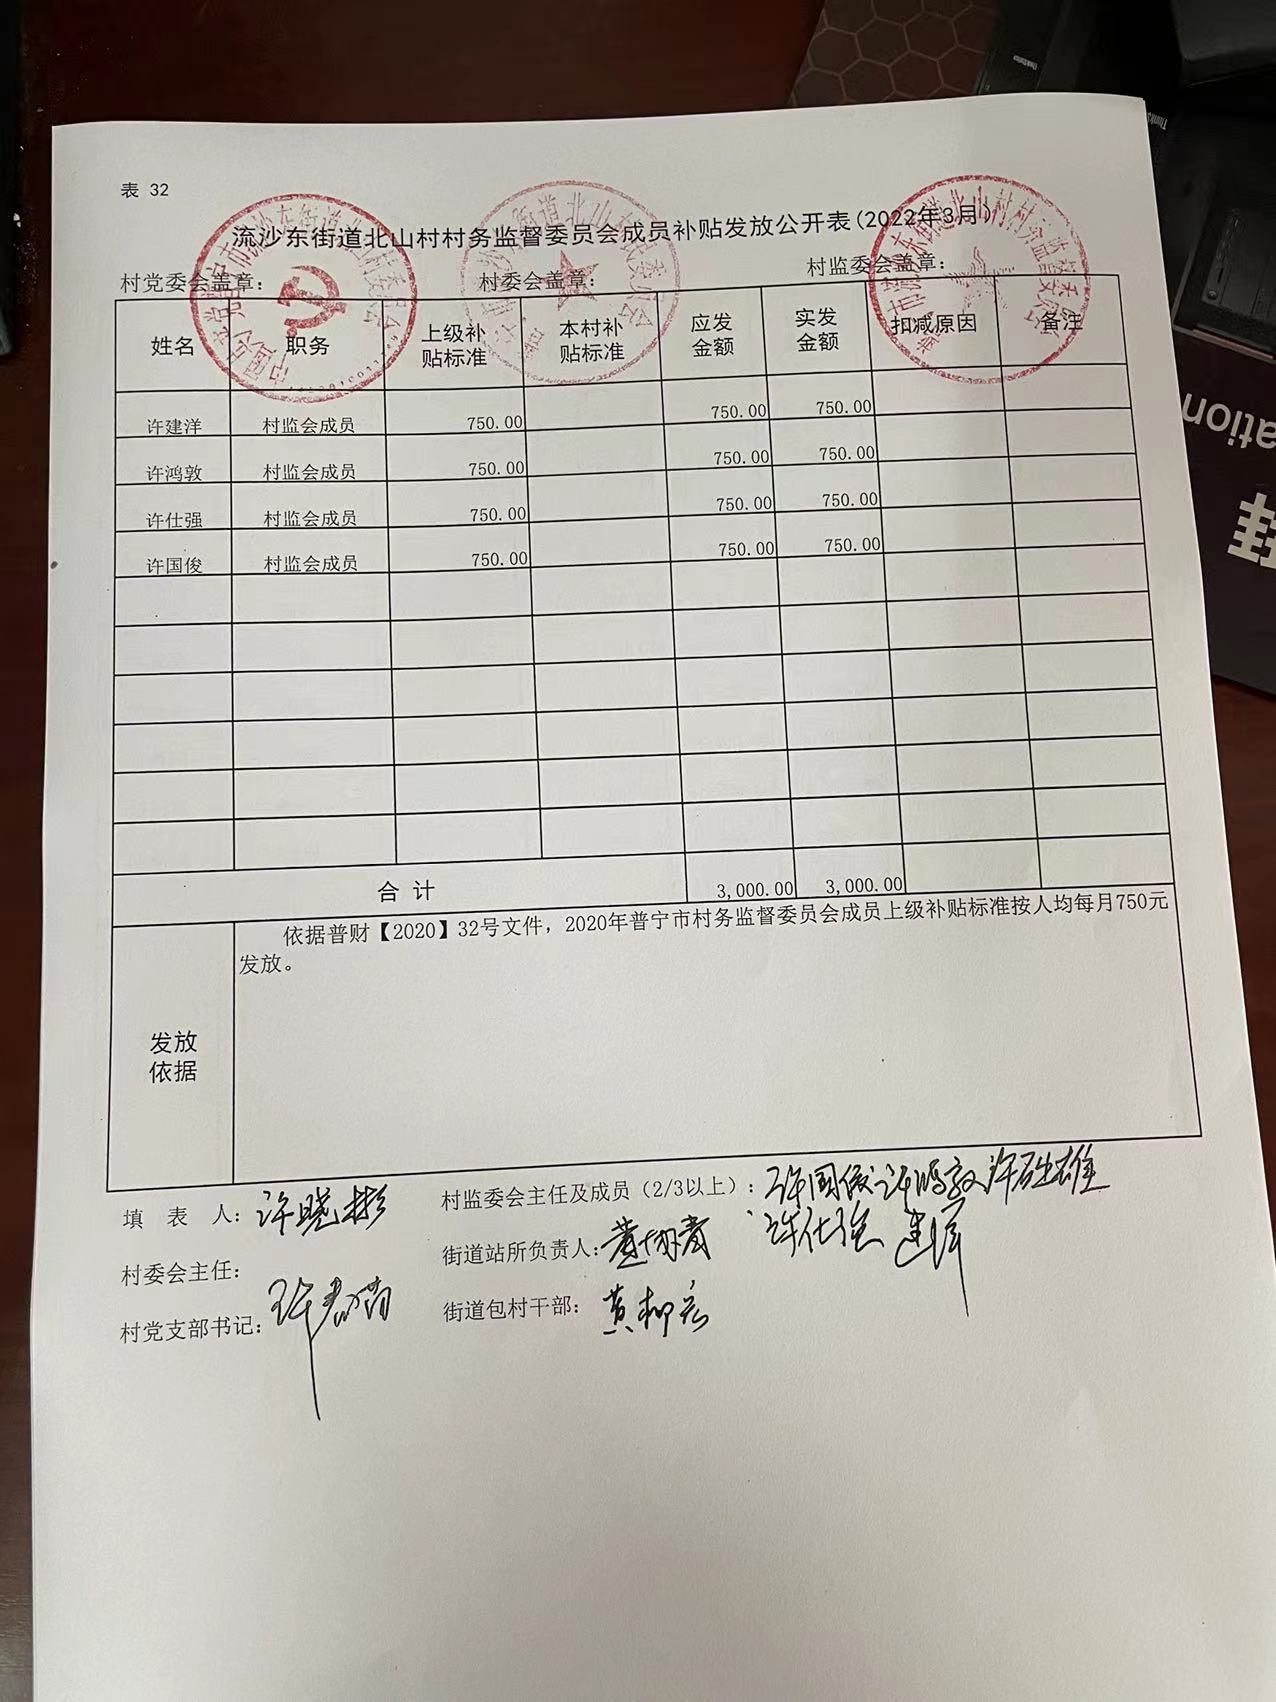 表 32
流沙东街道北山村村务监督委员会成员补贴发放公开表(2022年3月)
村党委会盖章: 村委会盖章: 村监委会盖章:
姓名 职务 上级补贴标准 本村补贴标准 应发金额 实发金额 扣减原因 备注
许建洋 村监会成员 750.00 750.00 750.00
许鸿敦 村监会成员 750.00 750.00 750.00
许仕强 村监会成员 750.00 750.00 750.00
许国俊 村监会成员 750.00 750.00 750.00
合 计 3,000.00 3,000.00
发放依据
依据普财【2020】32号文件，2020年普宁市村务监督委员会成员上级补贴标准按人均每月750元
发放。
填 表 人: 许晓彬 村监委会主任及成员（2/3以上）: 许国俊 许鸿敦
许仕强 建洋
村委会主任: 街道站所负责人:
村党支部书记: 街道包村干部: